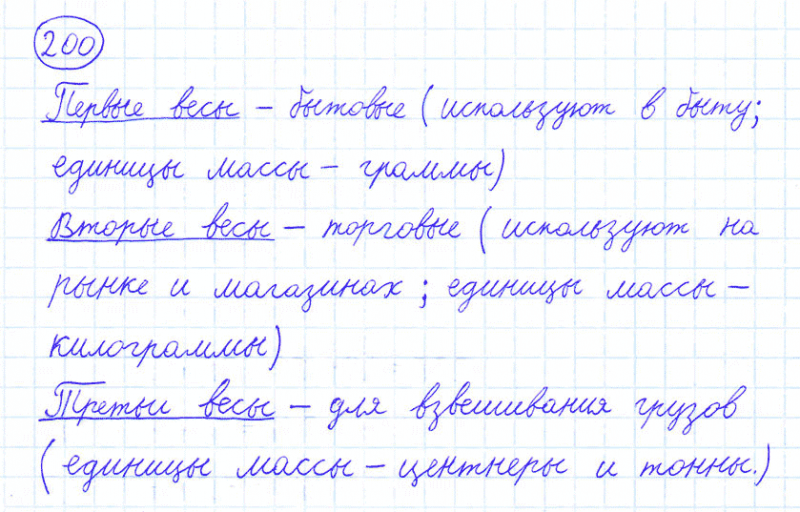 200
Первые весы – бытовые (используют в быту;
единицы массы – граммы)
Вторые весы – торговые (используют на
рынке и магазинах; единицы массы –
килограммы)
Третьи весы – для взвешивания грузов
(единицы массы – центнеры и тонны.)